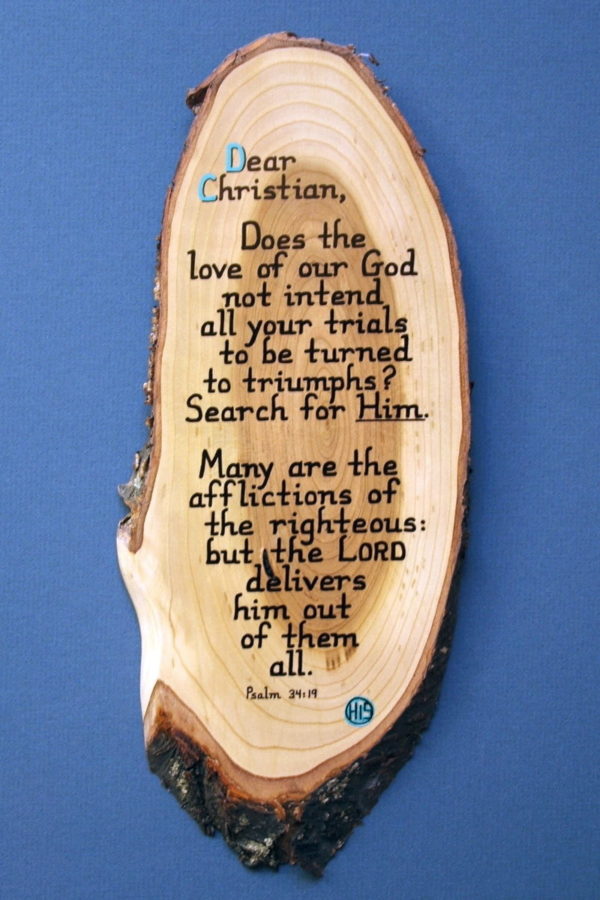 Dear
Christian,
Does the
love of our God
not intend
all your trials
to be turned
to triumphs?
Search for Him.
Many are the
afflictions of
the righteous:
but the LORD
delivers
him out
of them
all.
Psalm 34:19
HIS